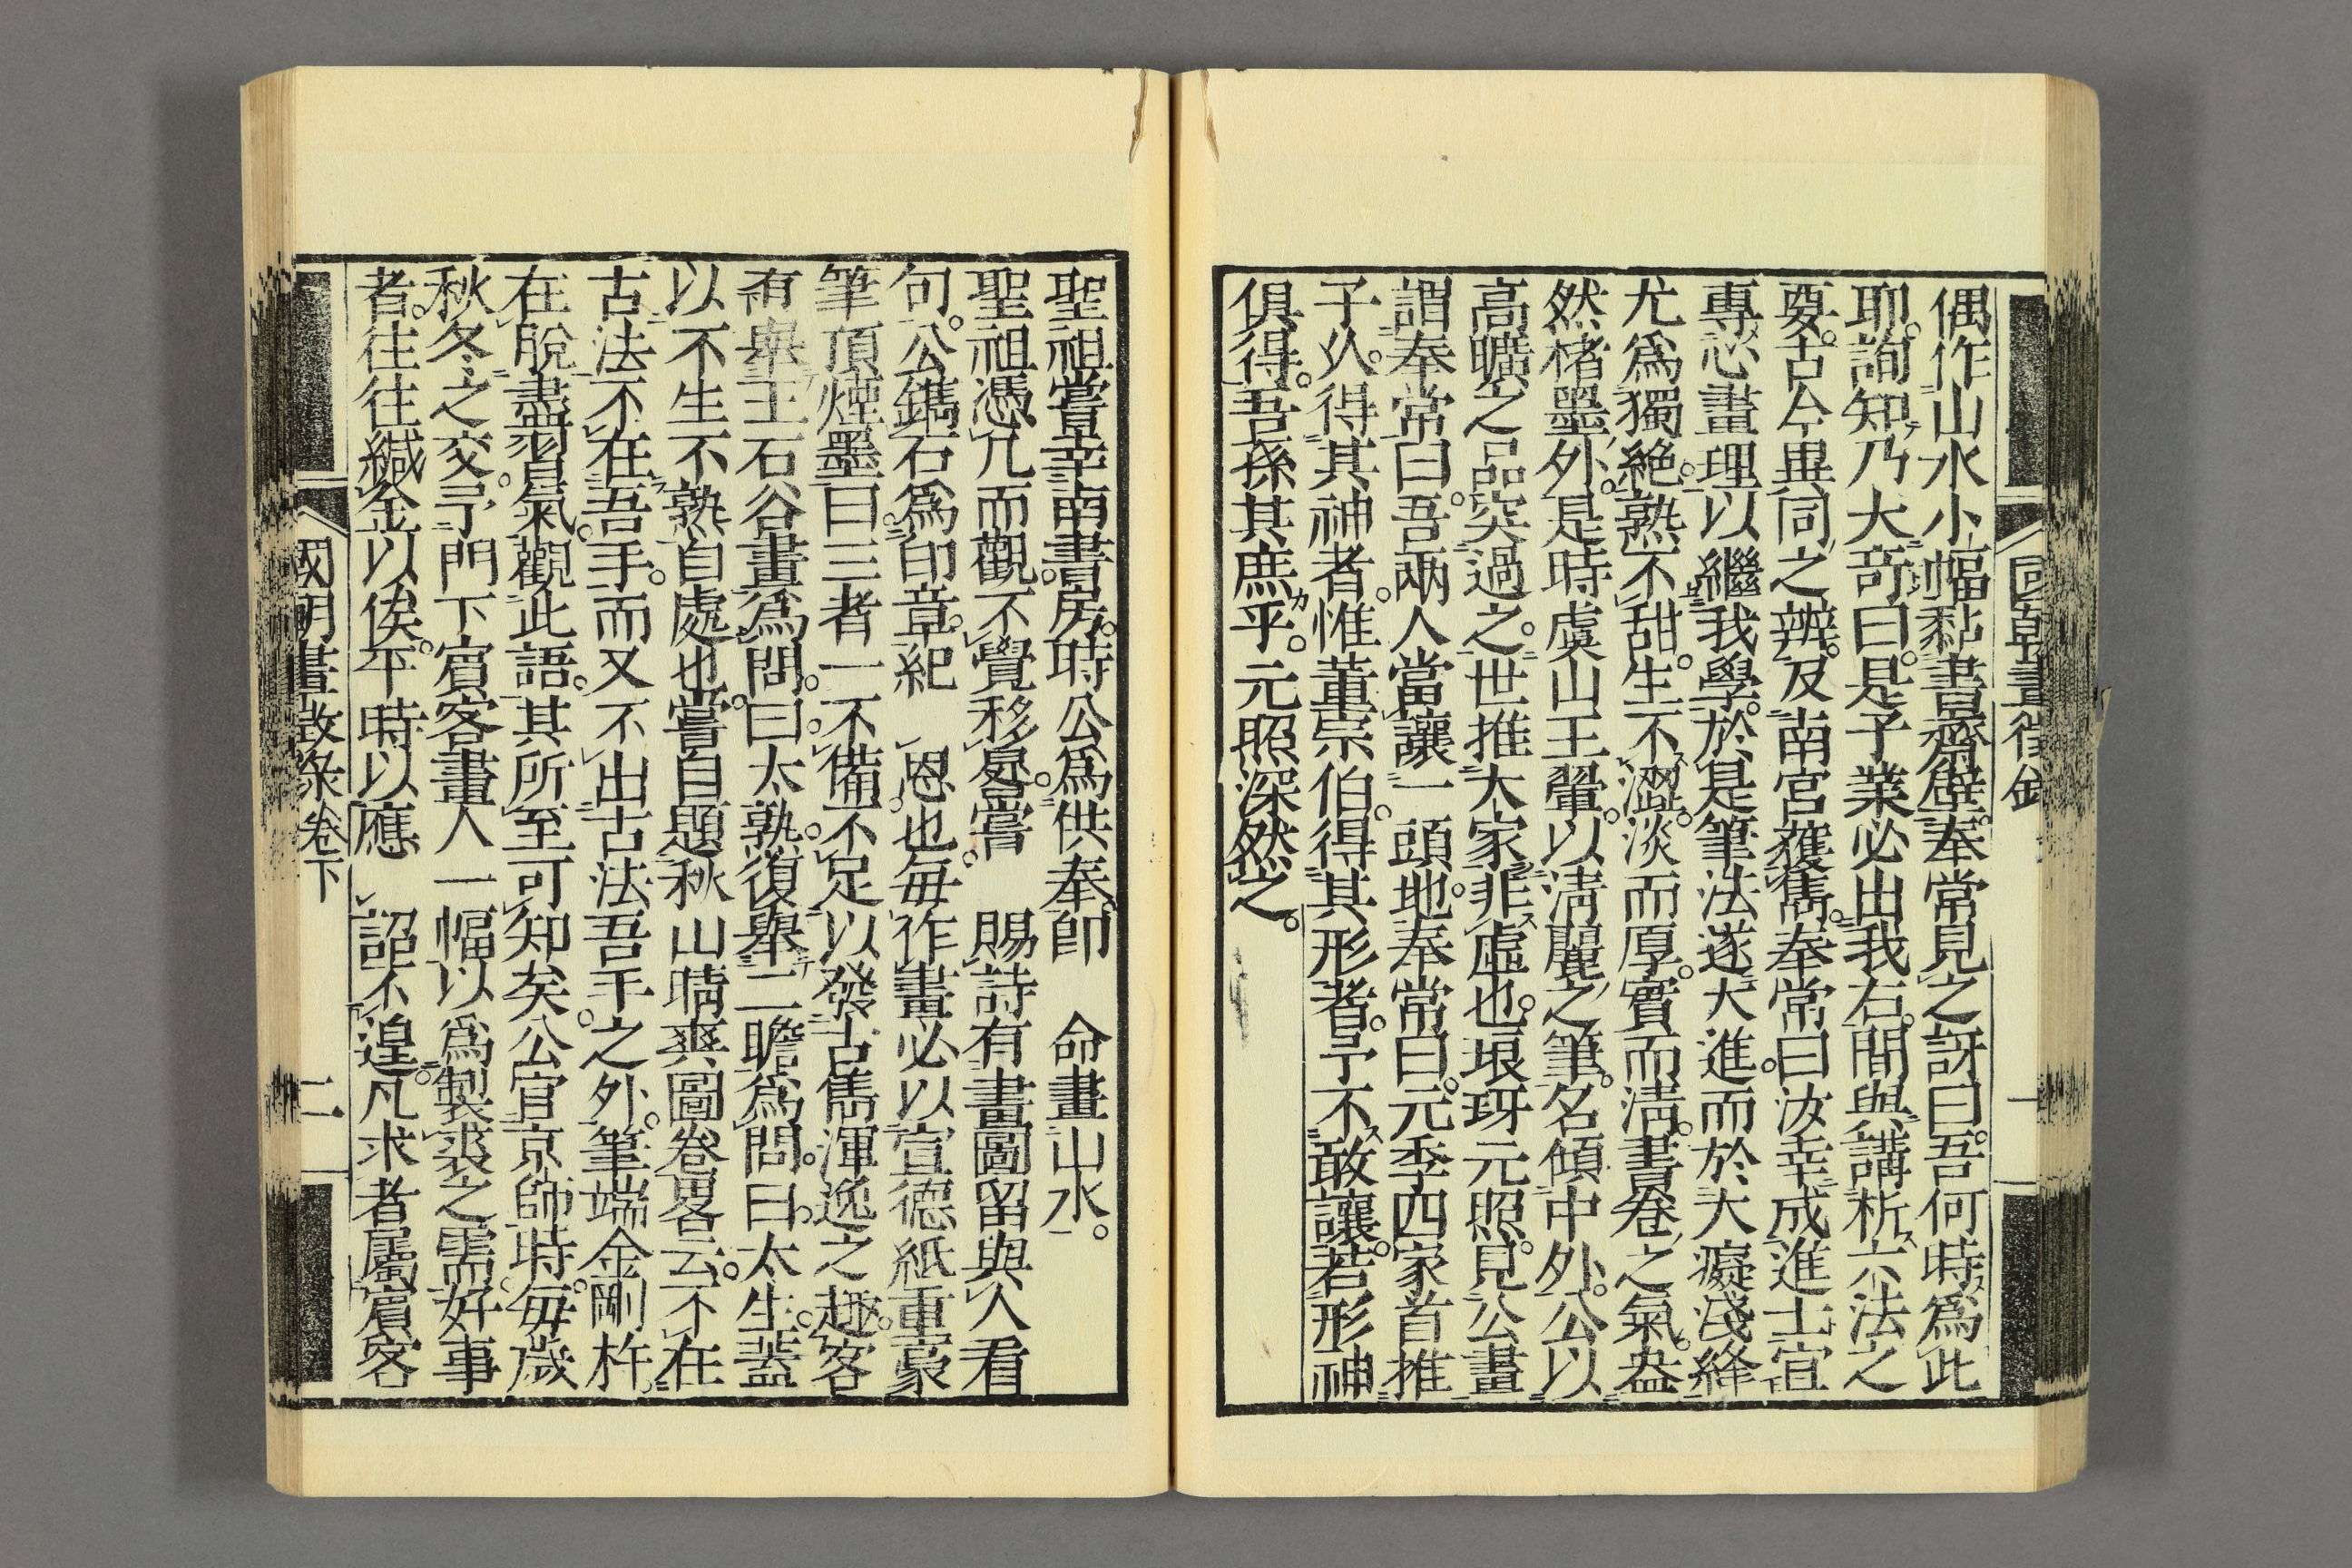 偶作山水小幅黏書齋壁。奉常見之訝曰。吾何時爲此
耶。詢知乃大奇曰。是子業必出我右。間與講析六法之
要。古今異同之辨。及南宮獲雋。奉常曰。汝幸成進士。宜
專心畫理以繼我學。於是筆法遂大進。而於大癡淺絳
尤爲獨絕。熟不甜。生不澀。淡而厚。實而淸。書卷之氣。盎
然楮墨外。是時虞山王翬。以淸麗之筆。名傾中外。公以
高曠之品突過之。世推大家非虛也。琅玡元照。見公畫
謂奉常曰。吾兩人當讓一頭地。奉常曰。元季四家首推
子久。得其神者。惟董宗伯。得其形者。予不敢讓。若形神
俱得。吾孫其庶乎。元照深然之。
聖祖嘗幸南書房。時公爲供奉。卽 命畫山水。
聖祖憑几而觀不覺移晷。嘗 賜詩有畫圖留與人看
句。公鐫石爲印章。紀 恩也。毎作畫必以宣德紙重毫
筆頂煙墨曰。三者一不備不足以發古雋渾逸之趣。客
有舉王石谷畫爲問。曰太熟。復舉二瞻爲問。曰太生。蓋
以不生不熟自處也。嘗自題秋山晴爽圖卷畧云。不在
古法不在吾手。而又不出古法吾手之外。筆端金剛杵。
在脫盡習氣。觀此語。其所至可知矣。公官京師時。毎歲
秋冬之交。予門下賓客畫人一幅以爲製裘之需。好事
者往往緘金以俟。平時以應 詔不遑。凡求者屬賓客
國朝畫徵錄卷下 二